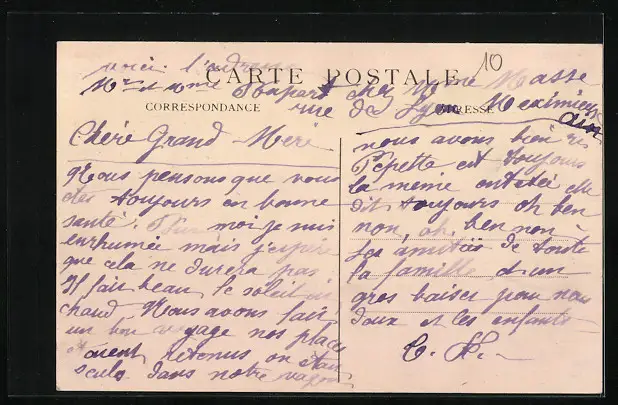 voici l'adresse
10
CARTE POSTALE
Mr et Mme chez Mme Masse
CORRESPONDANCE
ADRESSE
rue de Lyon Meximieux
Ain
Chère Grand-Mère
Nous pensons que vous
êtes toujours en bonne
santé. moi je suis
enrhumée mais j'espère
que cela ne durera pas
Il fait beau le soleil est
chaud. Nous avons fait
un bon voyage nos places
étaient retenus on était
seuls dans notre wagon
nous avons bien ri
Pepette est toujours
la même entêtée elle
dit toujours oh ben
non, oh, ben non
Les amitiés de toute
la famille et un
gros baiser pour nous
deux et les enfants